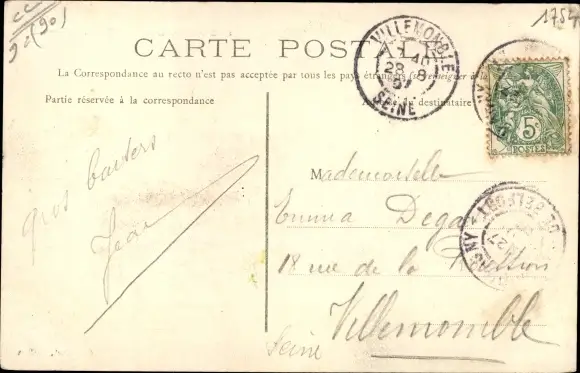 1754
CARTE POSTALE
La Correspondance au recto n'est pas acceptée par tous les pays étrangers (se renseigner à la
Partie réservée à la correspondance
destinataire
VILLEMOMBLE
28 8
07
SEINE
5c
POSTES
gros baisers
Jean
Mademoiselle
Emma
18 rue de la
Villemomble
Seine